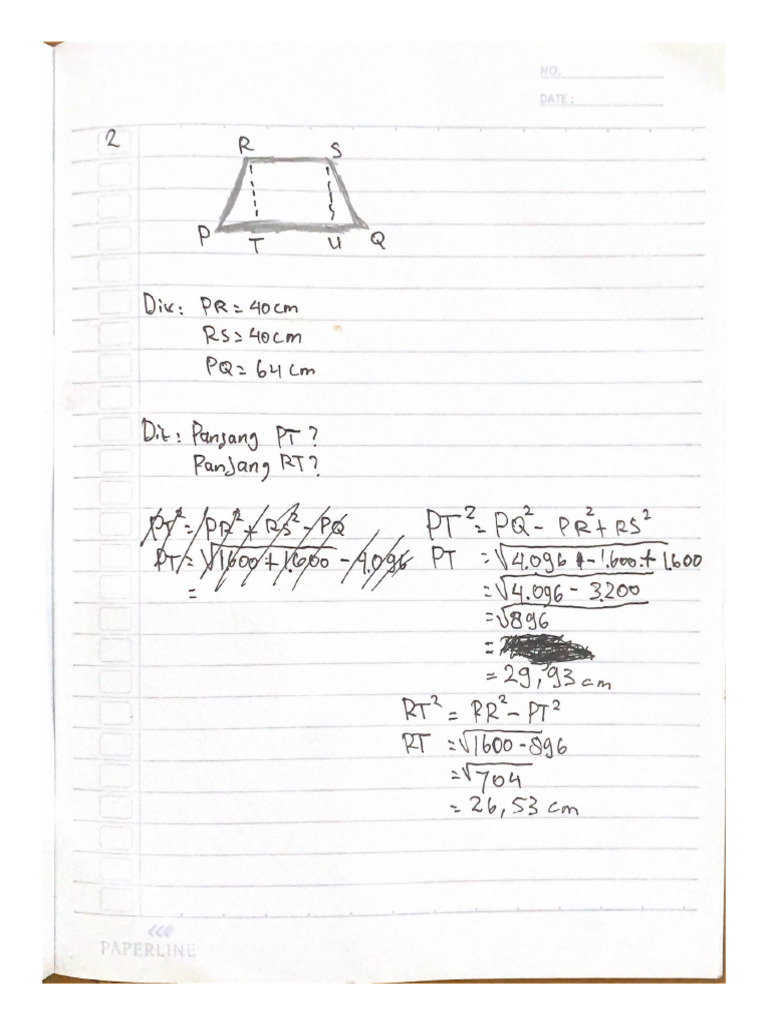 NO.
DATE:
2
R S
P T U Q
Dik: PR = 40 cm
RS = 40 cm
PQ = 64 cm
Dit: Panjang PT?
Panjang RT?
PT² = PR² + RS² - PQ
PT = √1600 + 1.600 - 4.096
=
PT² = PQ² - PR² + RS²
PT = √4.096 - 1.600 + 1.600
= √4.096 - 3.200
= √896
=
= 29,93 cm
RT² = PR² - PT²
RT = √1600 - 896
= √704
= 26,53 cm
PAPERLINE